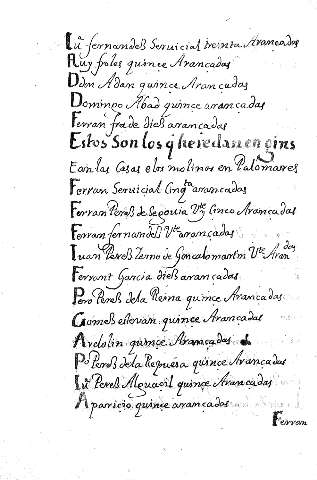 Ju. fernandeß Seruicial treinta Arançadas
Ruy froles quince Arançadas
Don Adan quince Arançadas
Domingo Abad quince arançadas
Ferran fra de dieß arançadas
Estos son los q heredan en gins
Ean las Casas e los molinos en Palomares
Ferran Seruicial Cinqta arançadas
Ferran Pereß de Segouia Vte y Cinco Arançadas
Ferran fernandeß Vte arançadas
Juan Pereß Yerno de Gonçalo martin Vte Arançdas
Ferrant Garcia dieß arançadas
Pero Pereß de la Reina quince Arançadas.
Gomeß esteuan quince Arançadas
Ardolin quince Arançadas
Po Pereß de la quince Arançadas
Ju. Pereß Alguaçil quince Arançadas
Aparicio quince arançadas
Ferran